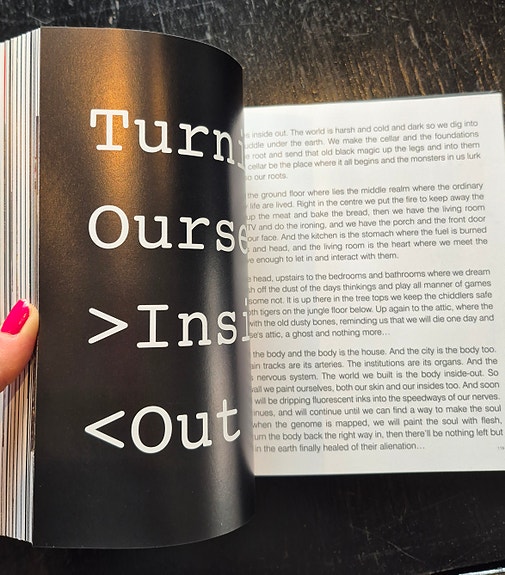 Turni
Ourse
>Insi
<Out
inside out. The world is harsh and cold and dark so we dig into
ddle under the earth. We make the cellar and the foundations
root and send that old black magic up the legs and into them
cellar be the place where it all begins and the monsters in us lurk
our roots.
the ground floor where lies the middle realm where the ordinary
life are lived. Right in the centre we put the fire to keep away the
up the meat and bake the bread, then we have the living room
TV and do the ironing, and we have the porch and the front door
our face. And the kitchen is the stomach where the fuel is burned
and head, and the living room is the heart where we meet the
enough to let in and interact with them.
head, upstairs to the bedrooms and bathrooms where we dream
off the dust of the days thinkings and play all manner of games
some not. It is up there in the tree tops we keep the chiddlers safe
tigers on the jungle floor below. Up again to the attic, where the
with the old dusty bones, reminding us that we will die one day and
se's attic, a ghost and nothing more...
the body and the body is the house. And the city is the body too.
ain tracks are its arteries. The institutions are its organs. And the
nervous system. The world we built is the body inside-out. So
all we paint ourselves, both our skin and our insides too. And soon
will be dripping fluorescent inks into the speedways of our nerves.
inues, and will continue until we can find a way to make the soul
when the genome is mapped, we will paint the soul with flesh,
urn the body back the right way in, then there'll be nothing left but
in the earth finally healed of their alienation...